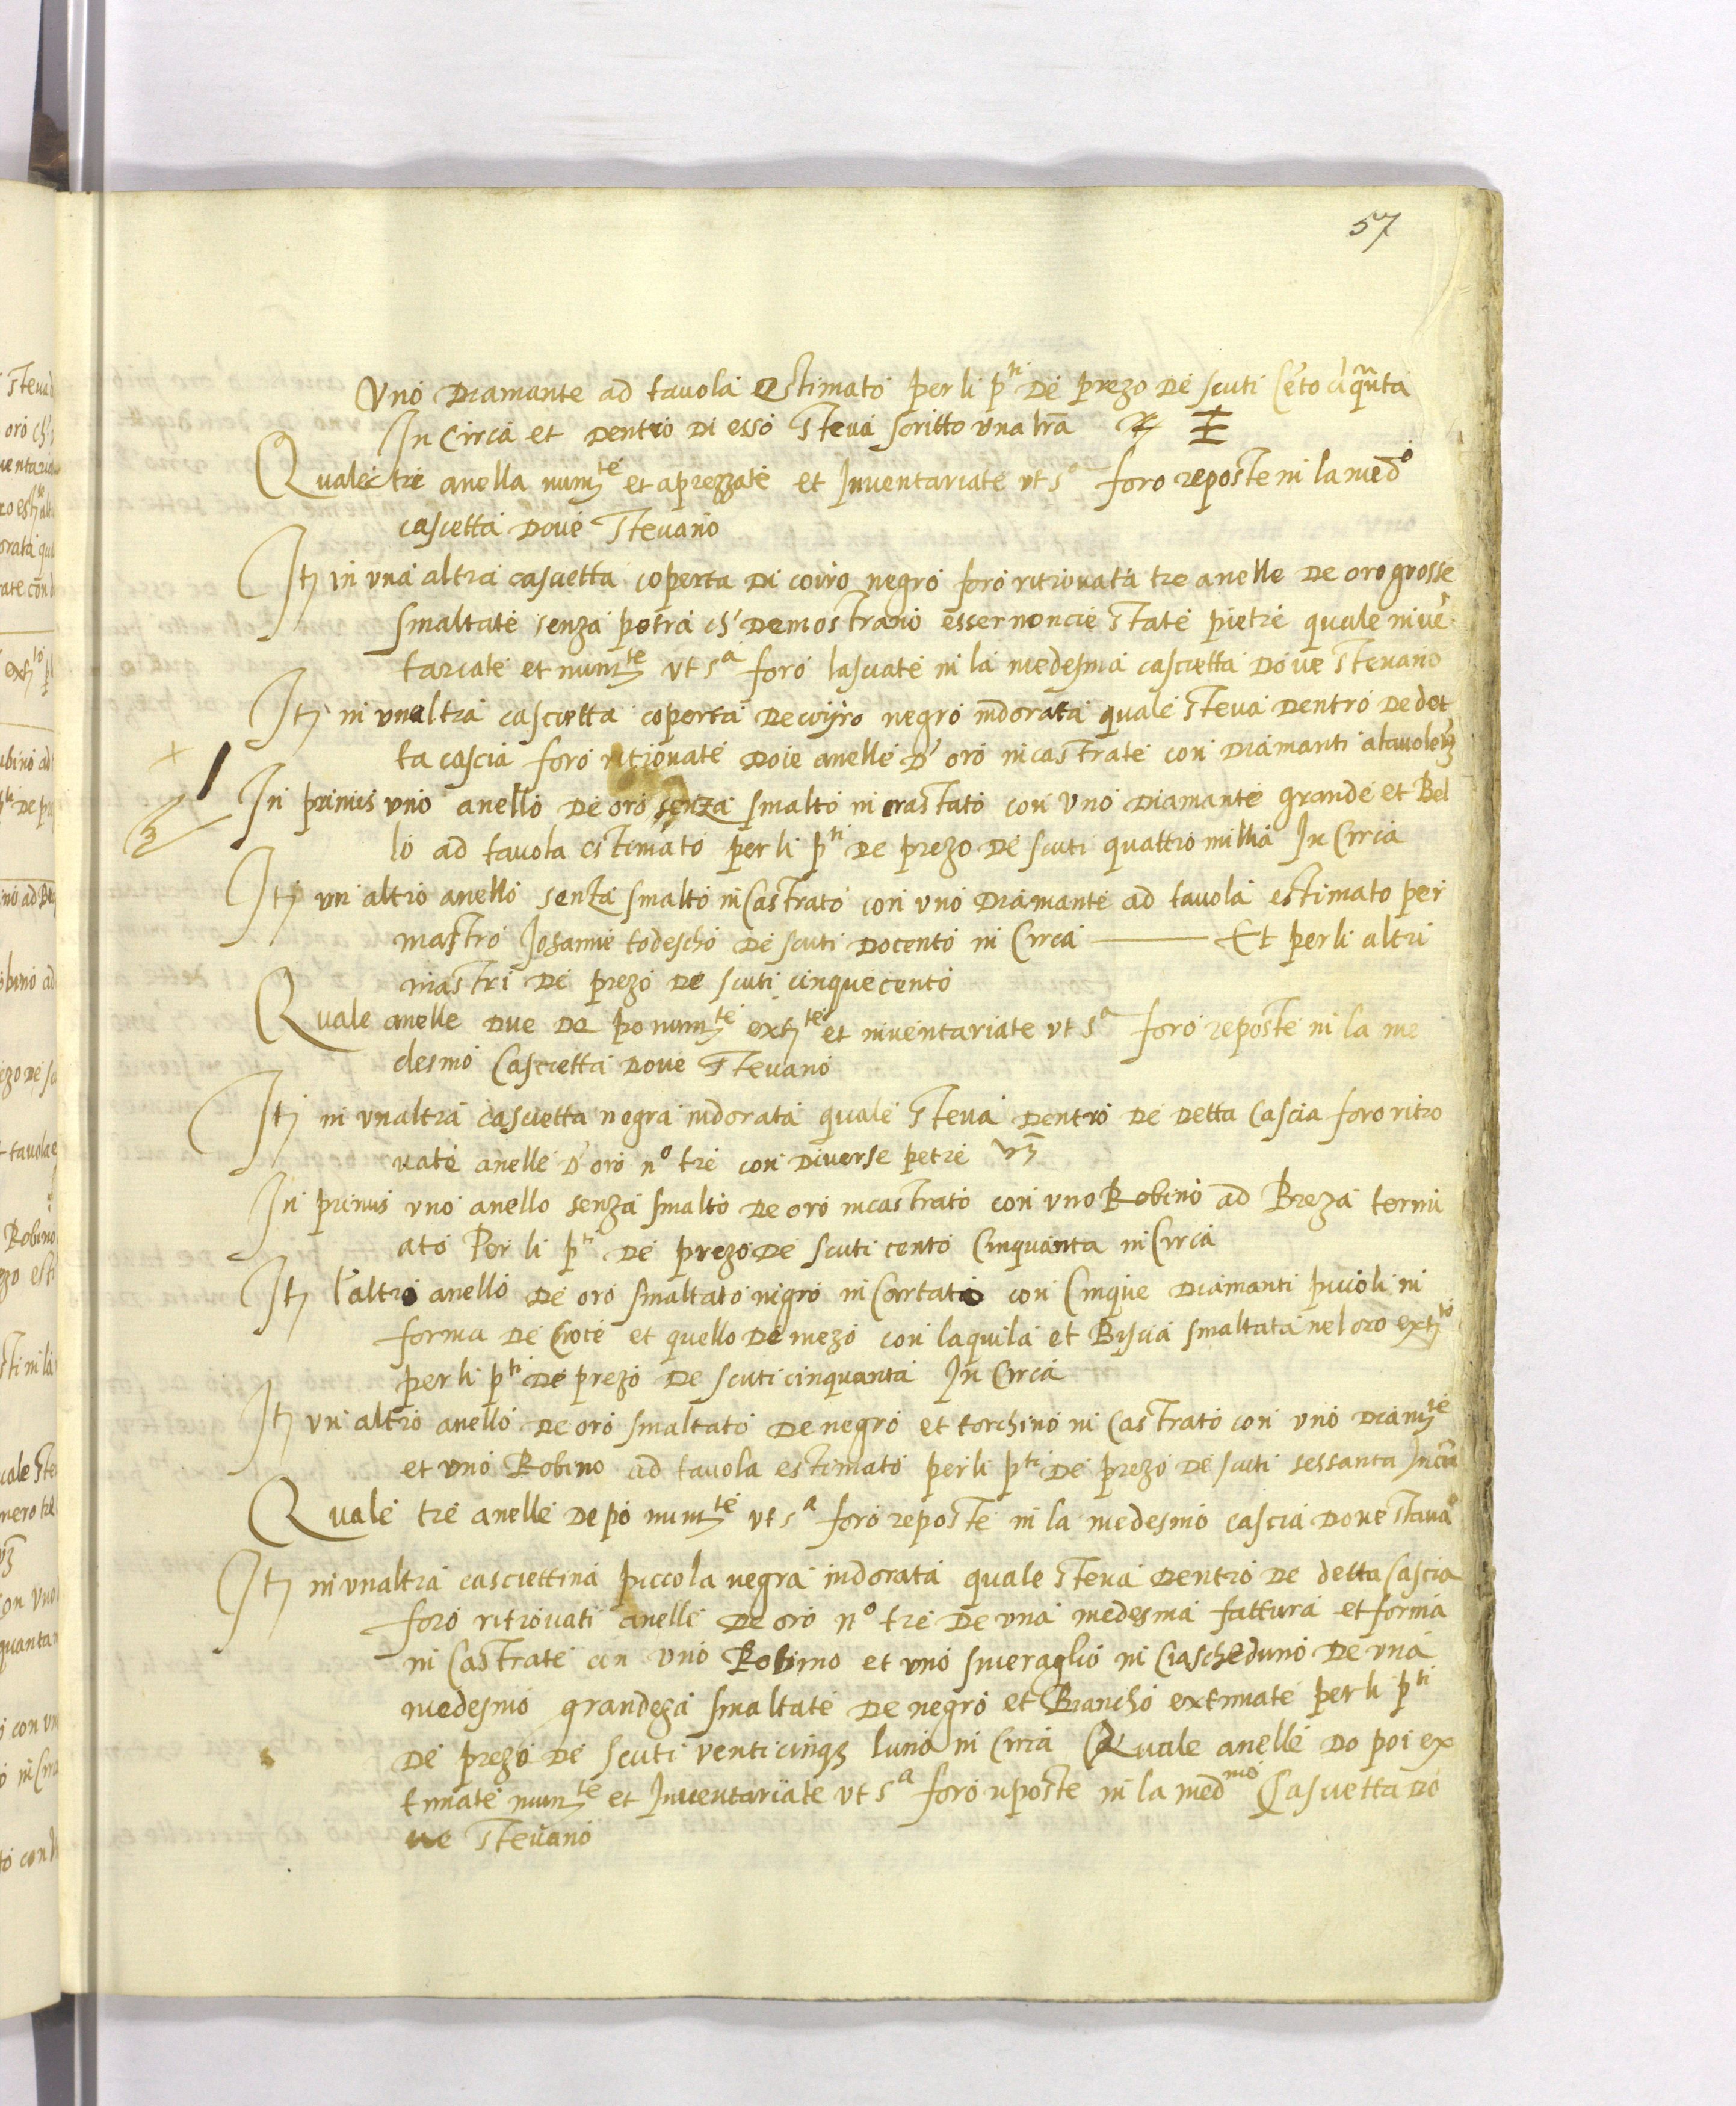 57
Uno Diamante ad tavola Estimato per li p^ti De prezo De scuti Ce'to ci'qua'ta
In Circa et Dentro Di esso Steva scritto una lr̃a
Quale tre anella num^te et aprezzate et Inventariate ut s^a foro reposte in la med^o
cascetta Dove Stevano
It͂ in una altra cascetta coperta Di coiro negro foro ritrovata tre anelle De oro grosse
smaltate senza petra ch' Demostrano esser noncie State pietre quale inve'
tariate et num^te ut s^a foro lasciate in la medesma cascietta Dove Stevano
It͂ in unaltra cascietta coperta De coijro negro indorata quale Steva Dentro De det
ta cascia foro ritrovate Doie anelle D' oro incastrate con Diamanti a tavole vz
In primis uno anello De oro senza smalto incrastato con Uno Diamante grande et Bel
lo ad tavola estimato per li p^ti De prezo De scuti quattro milia In Circa
It͂ un altro anello senza smalto in Castrato con uno Diamante ad tavola estimato per
mastro Josanne todescho De scuti Docento in Circa ——— Et per li altri
mastri De prezo De scuti cinquecento
Quale anelle Due De po num^te ext^te et inventariate ut s^a foro reposte in la me
desmo Cascietta Dove Stevano
It͂ in unaltra cascietta negra indorata quale Steva Dentro De Detta Cascia foro ritro
vate anelle D' oro n^o tre con Diverse petre vz
In primis uno anello senza smalto De oro incastrato con uno Robino ad Breza termi
ato Per li p^ti De prezo De scuti cento Cinquanta in Circa
It͂ l'altro anello De oro smaltato nigro in Cartato con Cinque Diamanti piccoli in
forma De Croce et quello De mezo con laquila et Biscia smaltata nel oro ext^to
per li p^ti De prezo De scuti cinquanta In Circa
It͂ un altro anello De oro smaltato De negro et torchino in Castrato con uno Diam^te
et uno Robino ad tavola estimato per li p^ti De prezo De scuti sessanta In cir̃a
Quale tre anelle De po num^te ut s^a foro reposte in la medesmo cascia Dove stava^o
It͂ in unaltra casciettina piccola negra indorata quale Steva Dentro De detta Cascia
foro ritrovati anelle De oro n^o tre De una medesma fattura et forma
in Castrate con uno Robino et uno smeraglio in Ciascheduno De una
medesmo grandeza smaltate De negro et Biancho extimate per li p^ti
De prezo De scuti venticinq3 luno in Circa Quale anelle Do poi ex
timate num^te et Inventariate ut s^a foro riposte in la med^mo Cascietta Do
ve Stevano